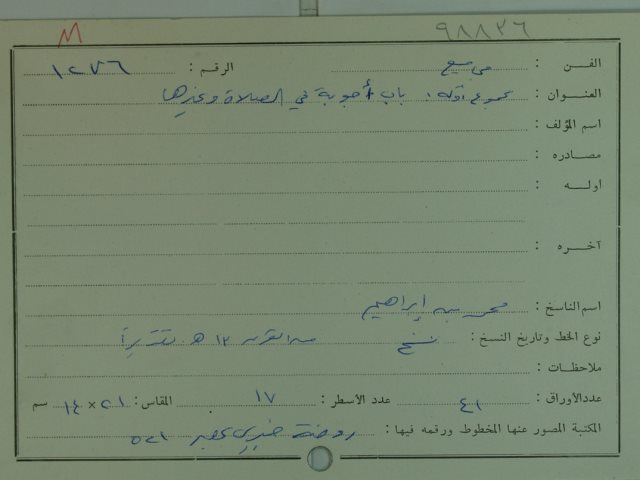 M ٩٨٨٣٦
الفـــن : مجاميع الرقم : ١٢٧٦
العنـــوان : مجموع أوله : باب أجوبة في الصلاة وغيرها
اسم المؤلف :
مصـــادره :
اولـــه :
آخـــره :
اسم الناسخ : محمد بن إبراهيم
نوع الخط وتاريخ النسخ : نسخ من القرن ١٣ هـ تقديراً
ملاحظـــات :
عدد الأوراق : ٤١ عدد الأسطر : ١٧ المقاس : ٢١ × ١٤ سم
المكتبة المصور عنها المخطوط ورقمه فيها : روضة خيري بمصر